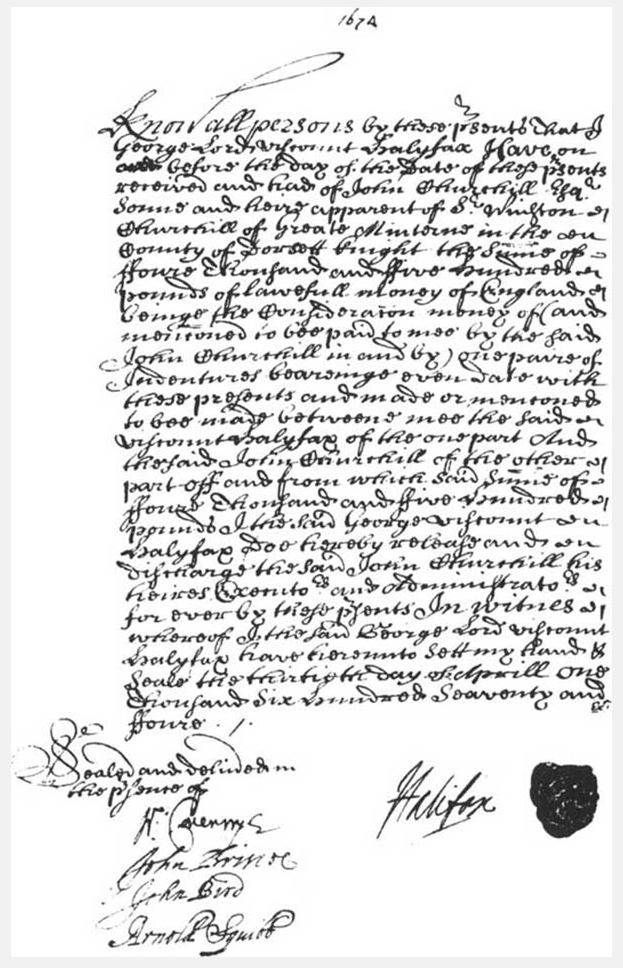 1674
Know all persons by these p'sents that I
George Lord Viscount Halyfax Have on
and before the day of the Date of these p'sents
received and had of John Churchill Esqr
Sonne and heire apparent of Sr Winston
Churchill of Greate Minterne in the
County of Dorsett Knight the Summe of
ffoure Thousand and ffive Hundred
pounds of lawefull Money of England
beinge the Consideracon money of (and
menconed to bee paid to mee by the said
John Churchill in and by) one paire of
Indentures beareinge even Date with
these presents and made or menconed
to bee made betweene mee the said
Viscount Halyfax of the one part And
the said John Churchill of the other
part off and from which said Summe of
ffoure Thousand and ffive Hundred
pounds I the said George Viscount
Halyfax Doe hereby release and
discharge the said John Churchill his
heires Executors and Administrators
for ever by these p'sents In witnes
whereof I the said George Lord Viscount
Halyfax have hereunto Sett my Hand &
Seale the thirtieth day of Aprill One
Thousand Six Hundred Seaventy and
ffoure
Sealed and delivered in
the p'sence of
Halifax
John Prince
John Bird
Arnold Squibb